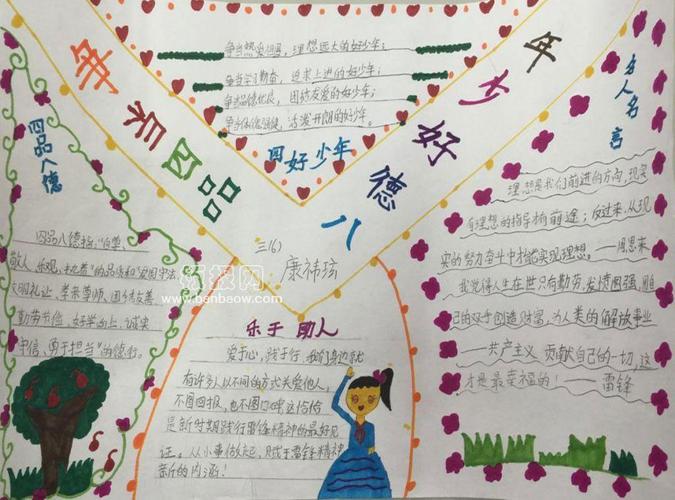 争当热爱祖国，理想远大的好少年；
争当学习勤奋，追求上进的好少年；
争当品德优良，团结友爱的好少年；
争当体魄强健，活泼开朗的好少年。
四好少年
争系四品
八德好少年
三(6)
康祎琀
四品八德
四品八德指："自尊、
敬人、乐观、执着"的品质和"爱国守法、
文明礼让、孝亲尊师、团结友善、
勤劳节俭、好学向上、诚实
守信、勇于担当"的德行。
手抄报网
www.banbaow.com
乐于助人
爱于心，践于行，我们身边就
有许多人以不同的方式关爱他人，
不图回报，也不图口碑这恰恰
是新时期践行雷锋精神的最好见
证。从小事做起，赋予雷锋精神
新的内涵！
名人名言
理想是我们前进的方向，现实
有理想的指导才有前途；反过来，从现
实的努力奋斗中才能实现理想。——周恩来
我觉得人生在世只有勤劳，发愤图强，用自
己的双手创造财富，为人类的解放事业
——共产主义 贡献自己的一切，这
才是最幸福的！——雷锋